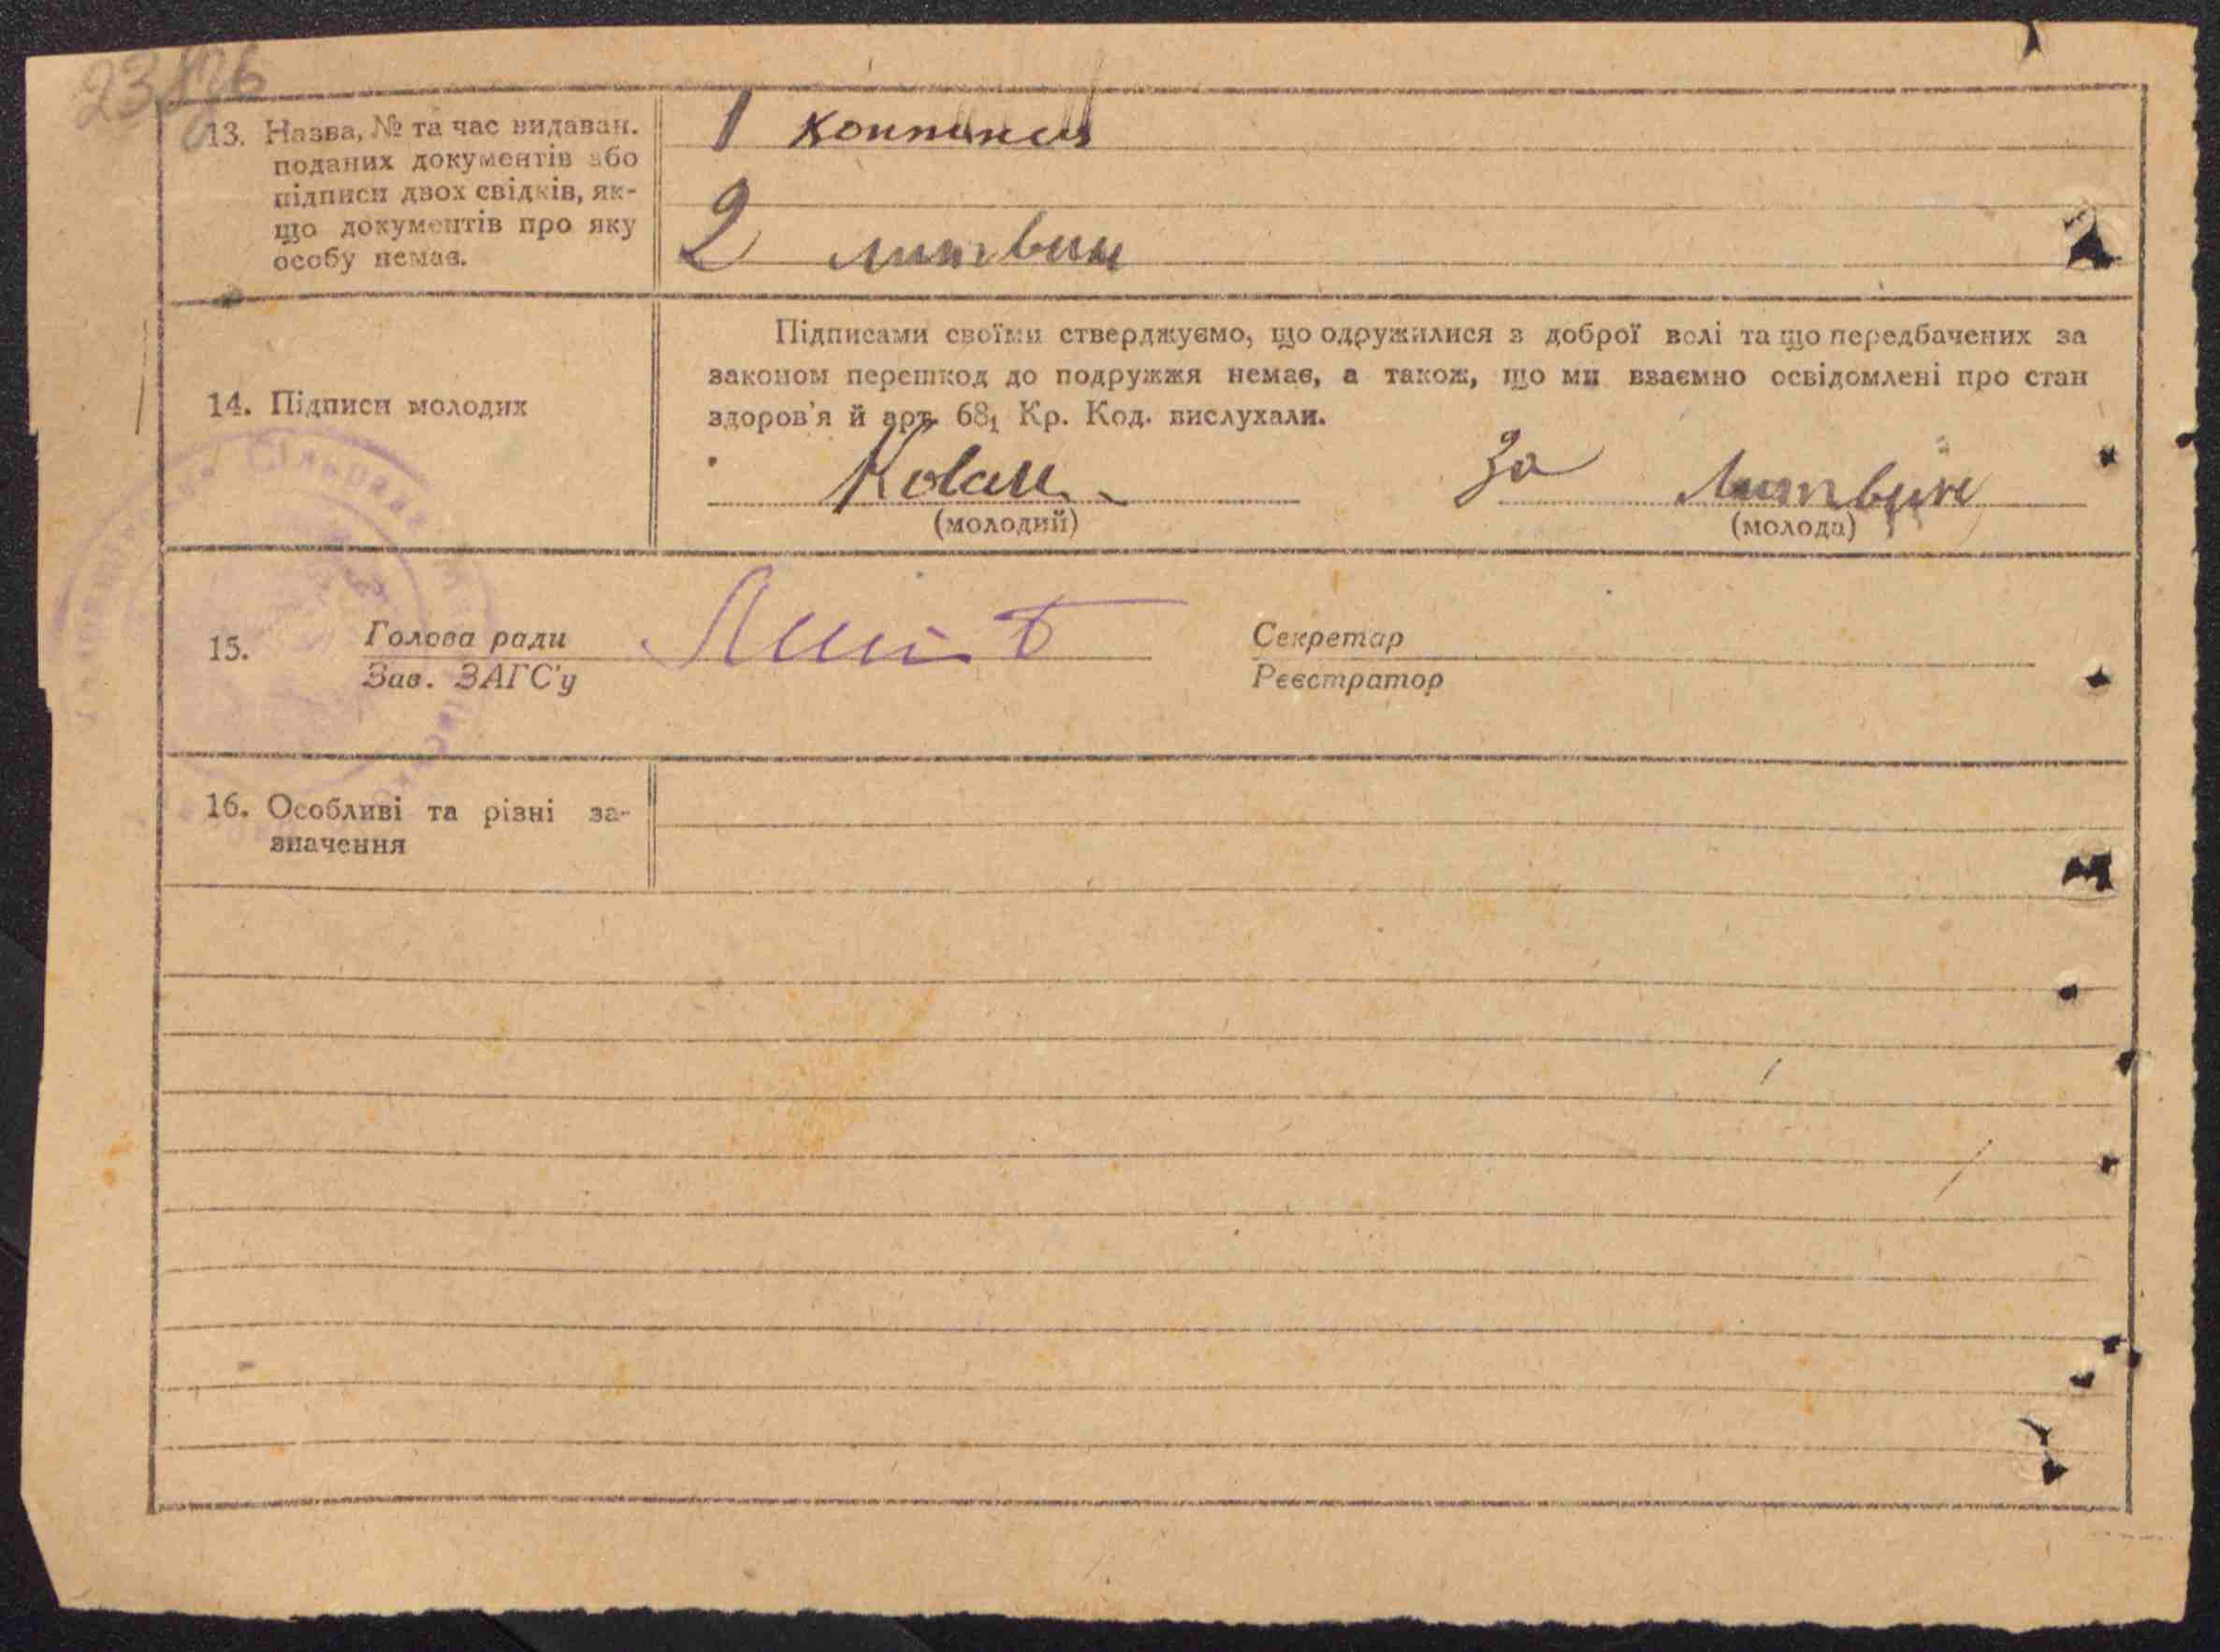 13. Назва, № та час видаван.
поданих документів або
підписи двох свідків, як-
що документів про яку
особу немає.
1
2 литвин
14. Підписи молодих
Підписами своїми стверджуємо, що одружилися з доброї волі та що передбачених за
законом перешкод до подружжя немає, а також, що ми взаємно освідомлені про стан
здоров'я й арт. 68₁ Кр. Код. вислухали.
За Литвин
(молодий) (молода)
15. Голова ради Секретар
Зав. ЗАГС'у Реєстратор
16. Особливі та різні за-
значення